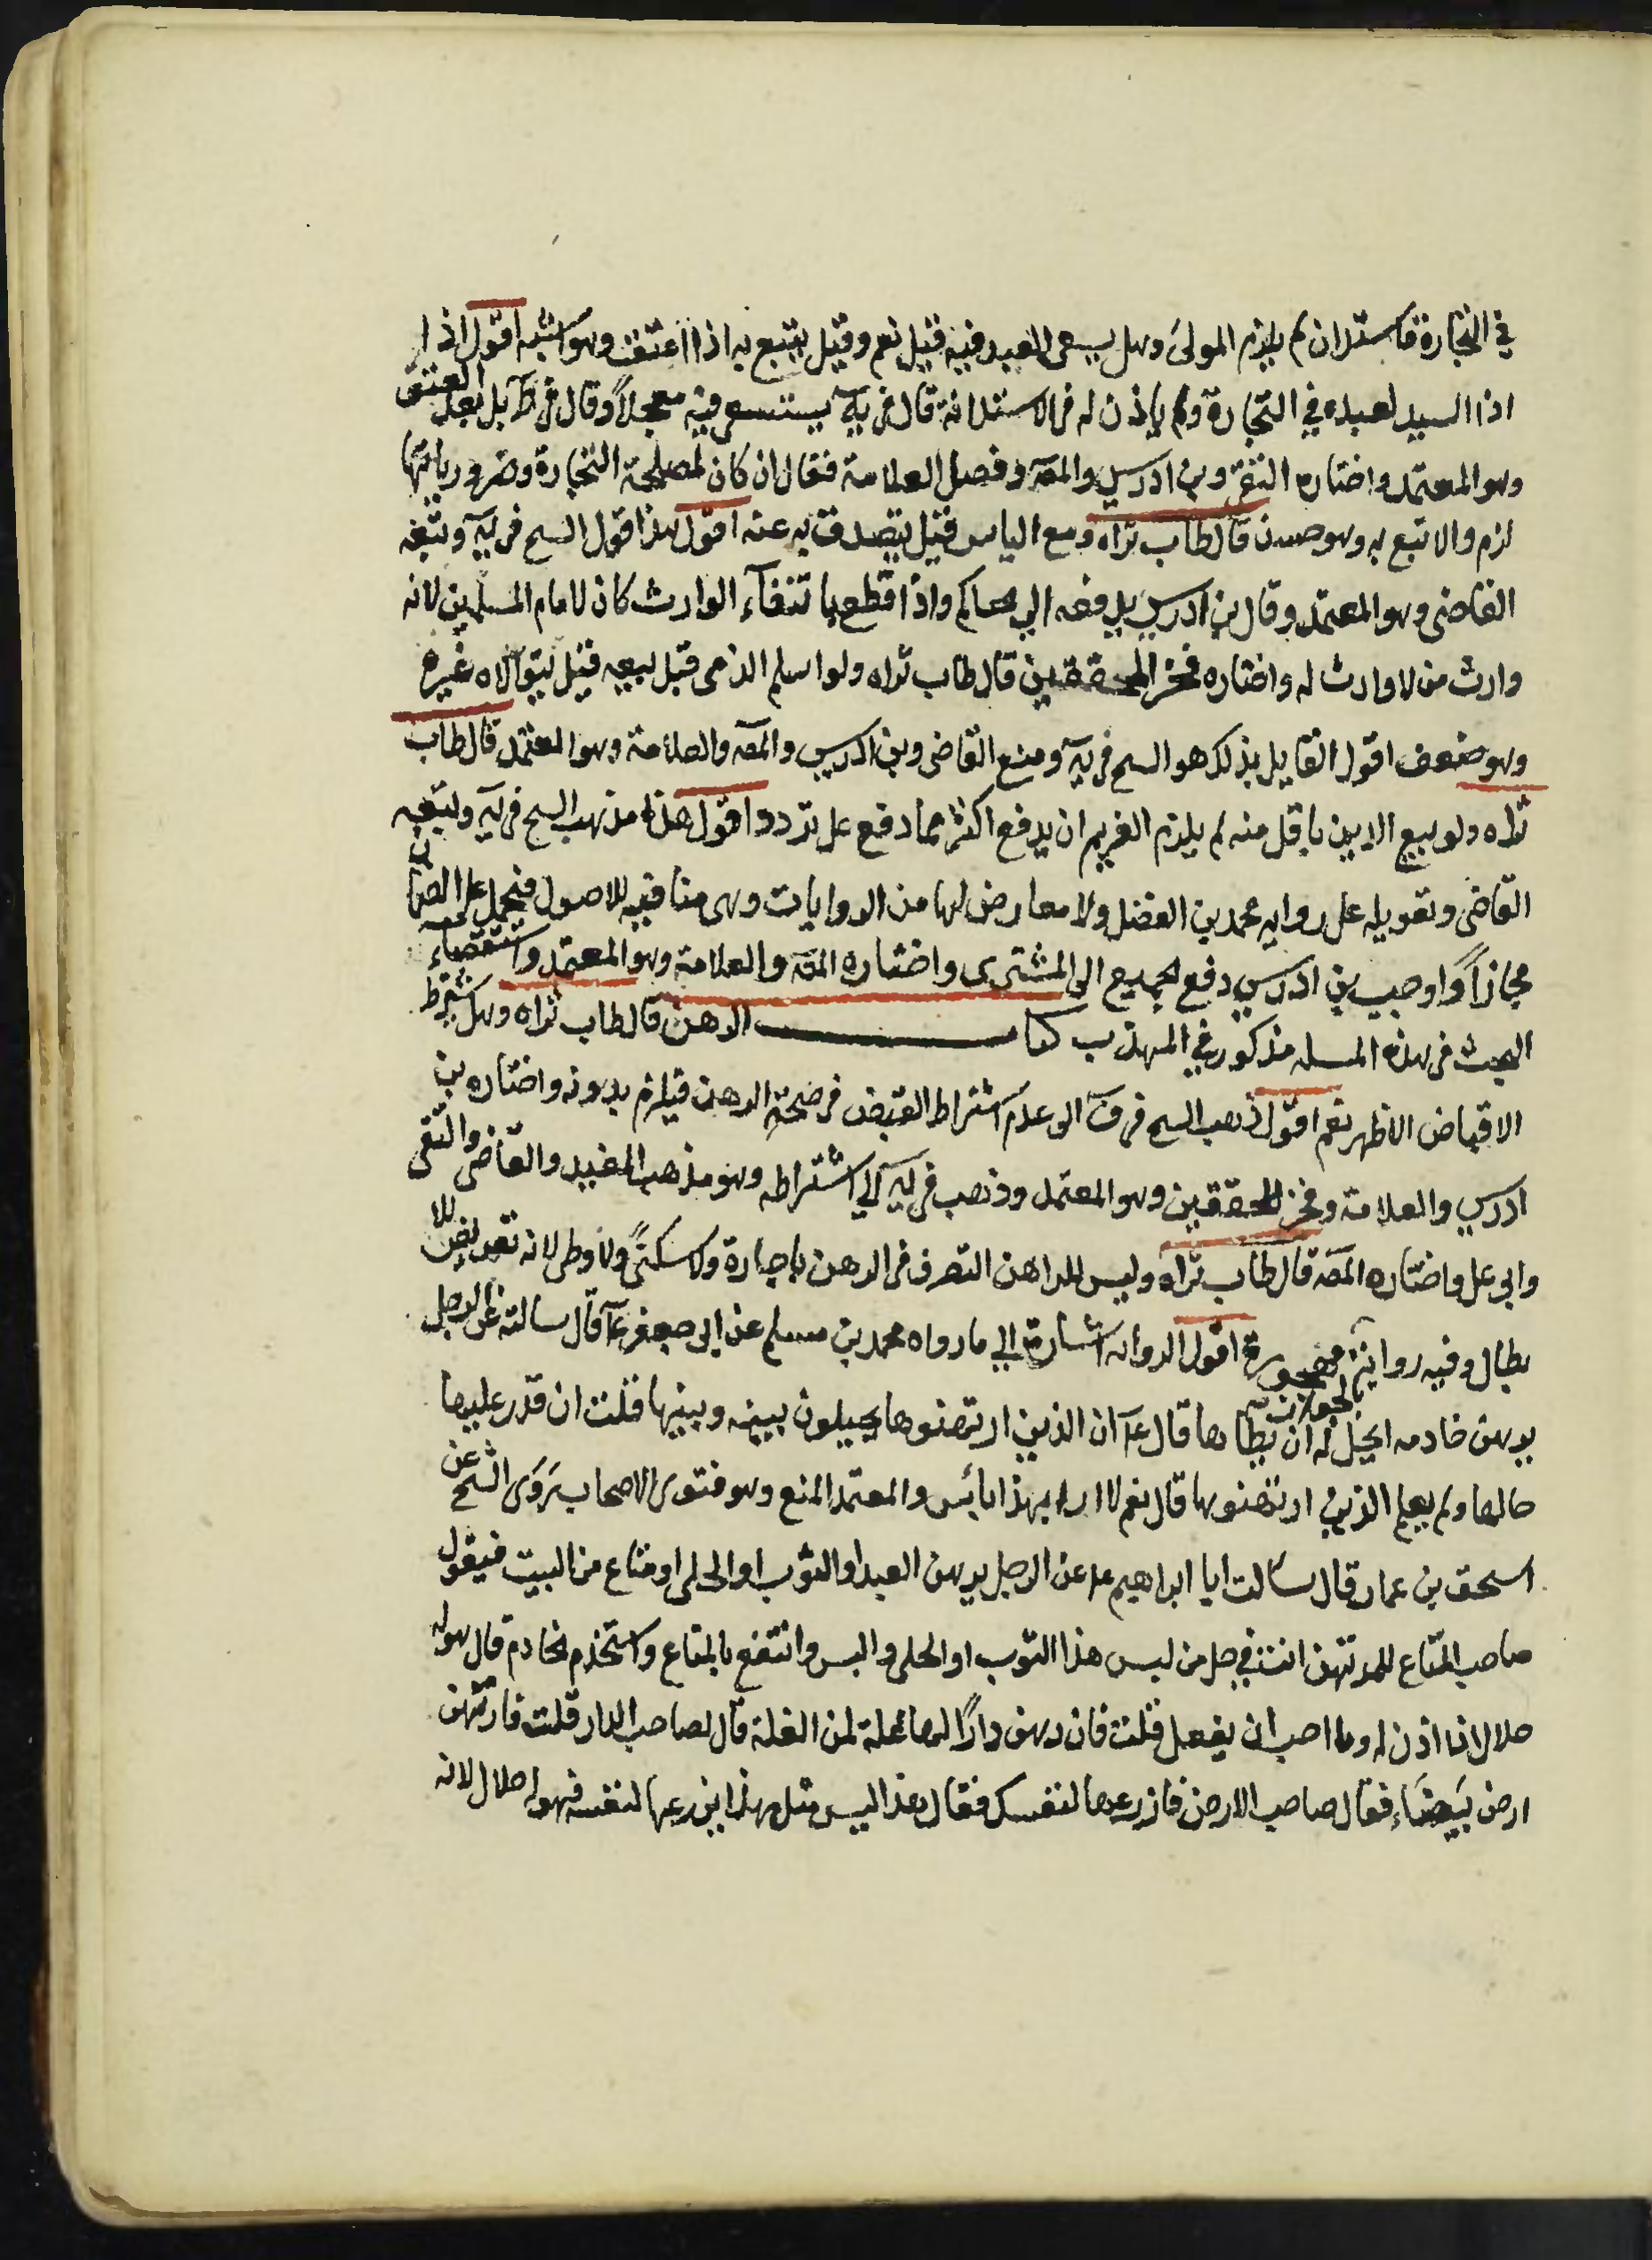 في التجارة فاستدان لم يلزم المولى وهل يسعى العبد فيه قيل نعم وقيل يتبع به اذا اعتق وهو اشبه اقول اذا
اذن السيد لعبده في التجارة ولم ياذن له في الاستدانة قال في يه يستسعى فيه معجلاً وقال في ط بل بعد العتق
وهو المعتمد واختاره التقى وبن ادريس والمصه وفصل العلامة فقال ان كان لمصلحة التجارة وضرورياتها
لزم والا تبع به وهو حسن قال طاب ثراه ومع الياس قيل يتصدق به عنه اقول هذا قول الشيخ في يه وتبعه
القاضى وهو المعتمد وقال بن ادريس يدفعه الي الحاكم واذا قطع بانتفآء الوارث كان لامام المسلمين لانه
وارث من لا وارث له واختاره فخر المحققين قال طاب ثراه ولو اسلم الذمى قبل بيعه قيل يتولاه غيره
وهو ضعيف اقول القايل بذلك هو الشيخ في يه ومنع القاضى وبن ادريس والمصه والعلامة وهو المعتمد قال طاب
ثراه ولو بيع الدين باقل منه لم يلزم الغريم ان يدفع اكثر مما دفع على تردد اقول هذا مذهب الشيخ في يه وتبعه
القاضى وتعويله على رواية محمد بن الفضل ولا معارض لها من الروايات وهى منافيه للاصول فيحمل على الضمان
مجازاً واوجب بن ادريس دفع الجميع الى المشترى واختاره المصه والعلامة وهو المعتمد واستقصاء
البحث في هذه المسله مذكور في المهذب كتاب الرهن قال طاب ثراه وهل يشترط
الاقباض الاظهر نعم اقول ذهب الشيخ في ف الى عدم اشتراط القبض في صحة الرهن فيلزم بدونه واختاره بن
ادريس والعلامة وفخر المحققين وهو المعتمد وذهب في يه الي اشتراطه وهو مذهب المفيد والقاضى والتقى
وابى على واختاره المصه قال طاب ثراه وليس للراهن التصرف في الرهن باجارة ولا سكنى ولا وطى لانه تعريض للا
بطال وفيه رواية مهجورة اقول الروايه اشارة الي ما رواه محمد بن مسلم عن ابى جعفر ع قال سالته عن الرجل
يرهن خادمه ايحل له ان يطاها قال ع ان الذين ارتهنوها يحيلون بينه وبينها قلت ان قدر عليها
خاليا ولم يعلم الذين ارتهنوها قال نعم لا ارى بهذا باس والمعتمد المنع وهو فتوى الاصحاب روى الشيخ عن
اسحق بن عمار قال سالت ابا ابراهيم ع عن الرجل يرهن العبد او الثوب او الحلى او متاع من البيت فيقول
صاحب المتاع للمرتهن انت في حل من لبس هذا الثوب او الحلى والبس وانتفع بالمتاع واستخدم الخادم قال هو له
حلال اذا اذن له وما احب ان يفعل قلت فان رهن داراً لها غلة لمن الغلة قال لصاحب الدار قلت فارتهن
ارض بيضاء فقال صاحب الارض فازرعها لنفسك فقال هذا ليس مثل هذا يزرعها لنفسه فهو له حلال لانه